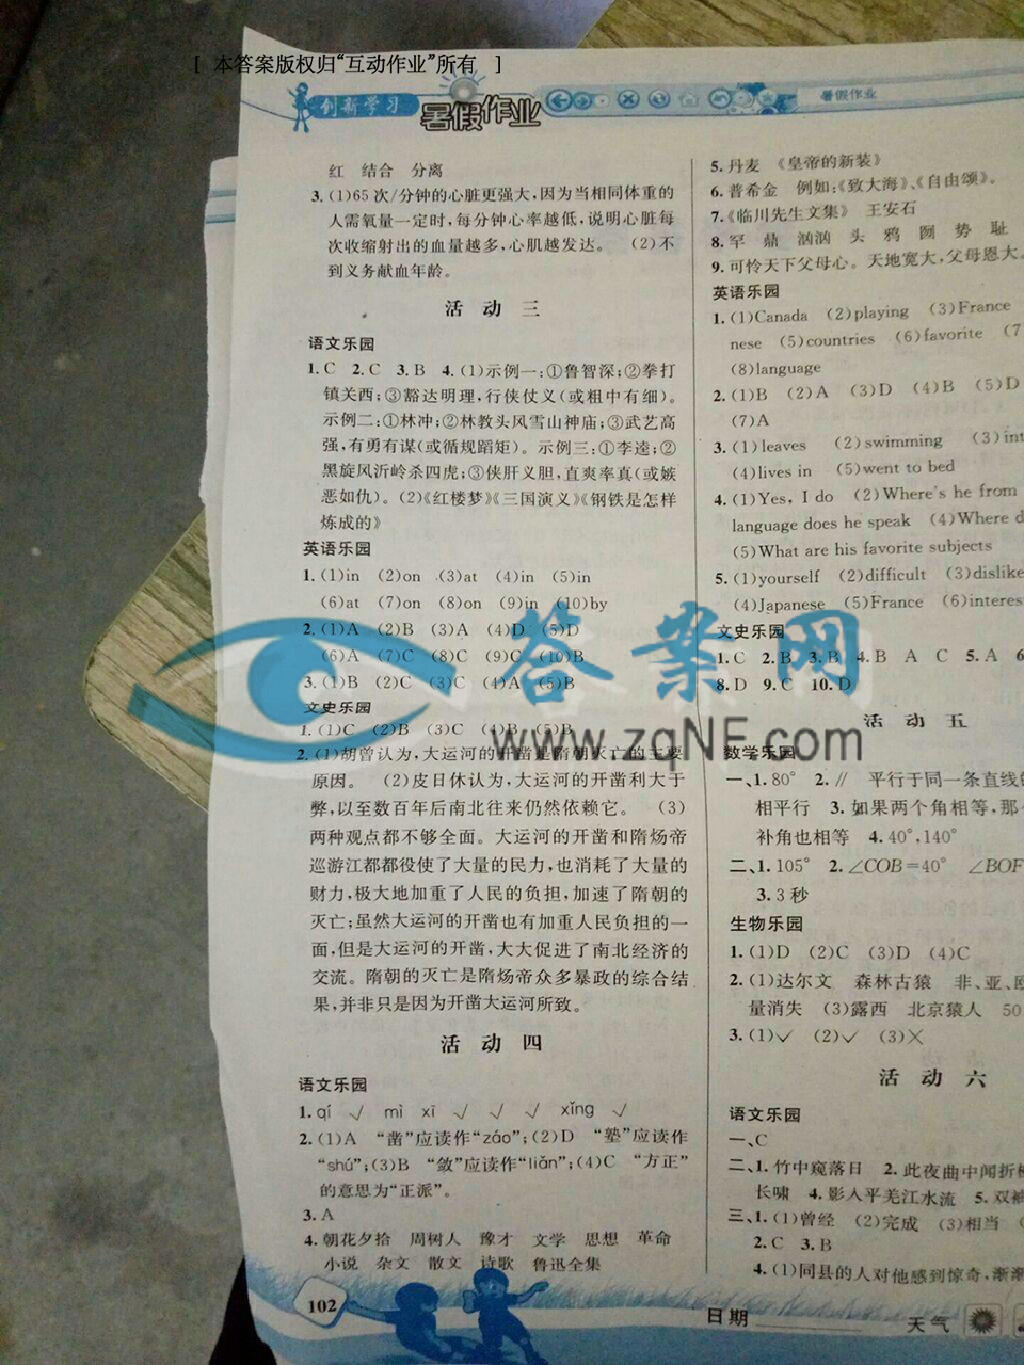 [ 本答案版权归“互动作业”所有 ]
创新学习
暑假作业
暑假作业
红 结合 分离
3. (1)65次/分钟的心脏更强大,因为当相同体重的
人需氧量一定时,每分钟心率越低,说明心脏每
次收缩射出的血量越多,心肌越发达。 (2)不
到义务献血年龄。
活 动 三
语文乐园
1. C 2. C 3. B 4. (1)示例一:①鲁智深;②拳打
镇关西;③豁达明理,行侠仗义(或粗中有细)。
示例二:①林冲;②林教头风雪山神庙;③武艺高
强,有勇有谋(或循规蹈矩)。示例三:①李逵;②
黑旋风沂岭杀四虎;③侠肝义胆,直爽率真(或嫉
恶如仇)。(2)《红楼梦》《三国演义》《钢铁是怎样
炼成的》
英语乐园
1. (1)in (2)on (3)at (4)in (5)in
(6)at (7)on (8)on (9)in (10)by
2. (1)A (2)B (3)A (4)D (5)D
(6)A (7)C (8)C (9)C (10)B
3. (1)B (2)C (3)C (4)A (5)B
文史乐园
1. (1)C (2)B (3)C (4)B (5)C
2. (1)胡曾认为,大运河的开凿是隋朝灭亡的主要
原因。 (2)皮日休认为,大运河的开凿利大于
弊,以至数百年后南北往来仍然依赖它。 (3)
两种观点都不够全面。大运河的开凿和隋炀帝
巡游江都都役使了大量的民力,也消耗了大量的
财力,极大地加重了人民的负担,加速了隋朝的
灭亡;虽然大运河的开凿也有加重人民负担的一
面,但是大运河的开凿,大大促进了南北经济的
交流。隋朝的灭亡是隋炀帝众多暴政的综合结
果,并非只是因为开凿大运河所致。
活 动 四
语文乐园
1. qí √ mì xī √ √ √ xǐng √
2. (1)A “凿”应读作“záo”;(2)D “塾”应读作
“shú”;(3)B “敛”应读作“liǎn”;(4)C “方正”
的意思为“正派”。
3. A
4. 朝花夕拾 周树人 豫才 文学 思想 革命
小说 杂文 散文 诗歌 鲁迅全集
102
5. 丹麦 《皇帝的新装》
6. 普希金 例如:《致大海》、《自由颂》。
7. 《临川先生文集》 王安石
8. 罕 鼎 汹汹 头 鸦 囫 势 耻
9. 可怜天下父母心。天地宽大,父母恩大。
英语乐园
1. (1)Canada (2)playing (3)France
nese (5)countries (6)favorite (7
(8)language
2. (1)B (2)A (3)D (4)B (5)D
(7)A
3. (1)leaves (2)swimming (3)int
(4)lives in (5)went to bed
4. (1)Yes, I do (2)Where's he from
language does he speak (4)Where d
(5)What are his favorite subjects
5. (1)yourself (2)difficult (3)dislike
(4)Japanese (5)France (6)interes
文史乐园
1. C 2. B 3. B 4. B A C 5. A 6
8. D 9. C 10. D
活 动 五
数学乐园
一、1. 80° 2. // 平行于同一条直线的
相平行 3. 如果两个角相等,那么
补角也相等 4. 40°,140°
二、1. 105° 2. ∠COB=40° ∠BOF
3. 3秒
生物乐园
1. (1)D (2)C (3)D (4)C
2. (1)达尔文 森林古猿 非、亚、欧
量消失 (3)露西 北京猿人 50
3. (1)√ (2)√ (3)╳
活 动 六
语文乐园
一、C
二、1. 竹中窥落日 2. 此夜曲中闻折柳
长啸 4. 影入平羌江水流 5. 双袖
三、1. (1)曾经 (2)完成 (3)相当
2. C 3. B
4. (1)同县的人对他感到惊奇,渐渐
日期
天气
答案网
www.zqNF.com